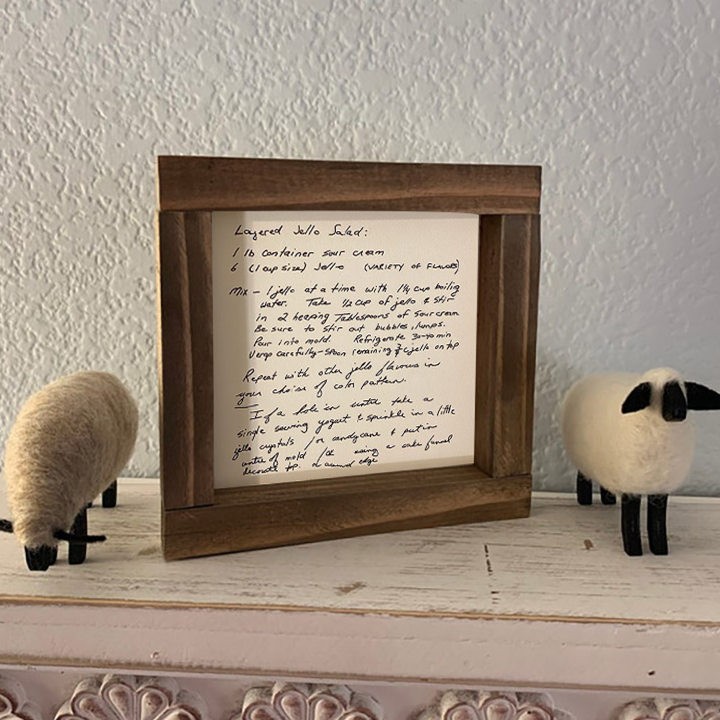 Layered Jello Salad:
1 lb container sour cream
6 (1 cup size) Jell-o (VARIETY OF FLAVORS)
Mix - 1 jello at a time with 1¼ cup boiling
water. Take ½ cup of jello & stir
in 2 heaping Tablespoons of sour cream
Be sure to stir out bubbles, lumps.
Pour into mold. Refrigerate 30-40 min
Very carefully - spoon remaining ¾ c jello on top
Repeat with other jello flavours in
your choice of color pattern.
If a hole in centre take a
single serving yogurt & sprinkle in a little
jello crystals /or candy cane & put in
centre of mold /or using a cake funnel
decorate top. or around edge